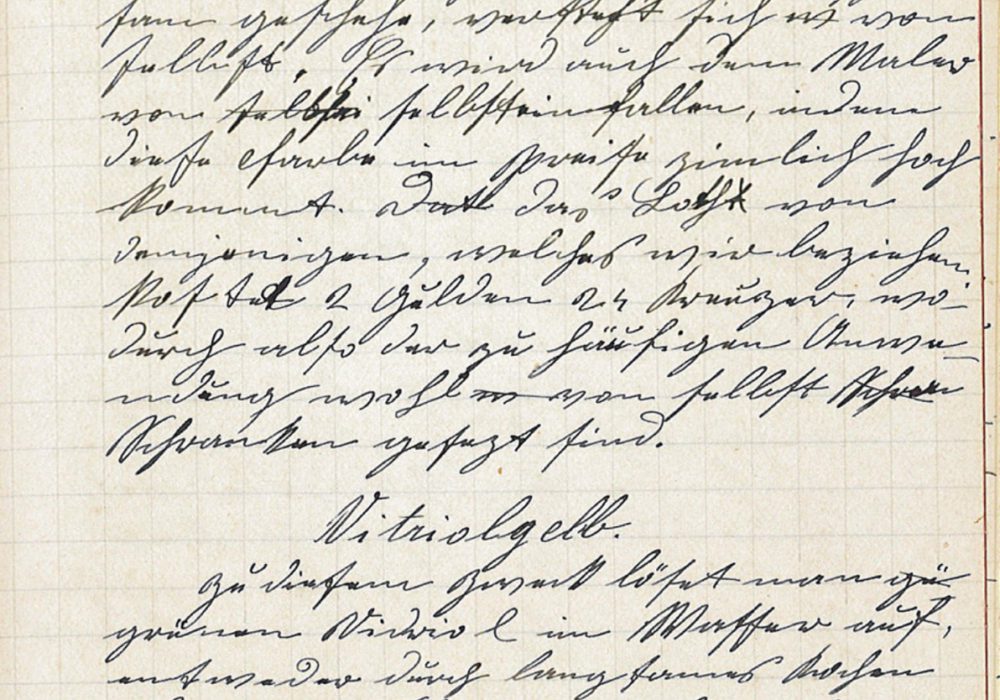 sam geschehe, versteht sich von
selbst. Es wird auch dem Maler
von selbst einfallen, indem
diese Farbe im Preise zimlich hoch
kommt. Dat das Loth von
demjenigen, welches wir beziehen,
kostet 2 Gulden 24 Kreuzer, wo-
durch also der zu häufigen Anwe-
ndung wohl von selbst
Schranken gesezt sind.
Vitriolgelb.
Zu diesem Zweck löset man gü-
grünen Vidriol im Wasser auf,
entweder durch langsames Kochen